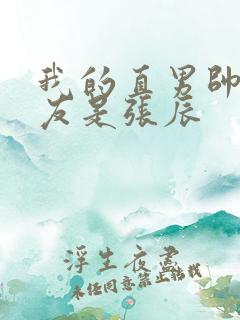 我的直男帥
友是張辰
浮生夜盡
未经同意禁止转载